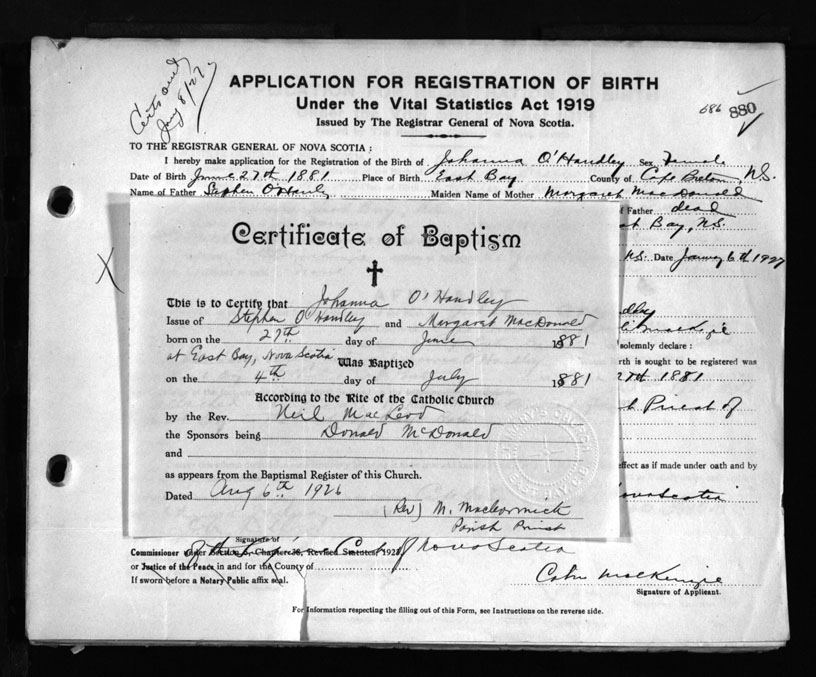 Certs
APPLICATION FOR REGISTRATION OF BIRTH
Under the Vital Statistics Act 1919
686 880
Issued by The Registrar General of Nova Scotia.
TO THE REGISTRAR GENERAL OF NOVA SCOTIA:
I hereby make application for the Registration of the Birth of Johanna O'Handley Sex Female
Date of Birth June 27th 1881 Place of Birth East Bay County of Cape Breton, N.S.
Name of Father Stephen O'Handly Maiden Name of Mother Margaret MacDonald
f Father dead
st Bay, N.S.
N.S. Date January 6th 1927
Certificate of Baptism
This is to Certify that Johanna O'Handley
Issue of Stephen O'Handley and Margaret MacDonald
born on the 27th day of June 1881
at East Bay, Nova Scotia Was Baptized
on the 4th day of July 1881
According to the Rite of the Catholic Church
by the Rev. Neil MacLeod
the Sponsors being Donald McDonald
and
as appears from the Baptismal Register of this Church.
Dated Aug 6th 1926
(Rev) M. MacCormick
Parish Priest
ndley
MacKenzie
solemnly declare :
rth is sought to be registered was
27th 1881
Priest of
effect as if made under oath and by
Nova Scotia
Signature of
Commissioner under Section Chapter 38, Revised Statutes 1923 Nova Scotia
or Justice of the Peace in and for the County of
If sworn before a Notary Public affix seal.
Colin MacKenzie
Signature of Applicant.
For Information respecting the filling out of this Form, see Instructions on the reverse side.